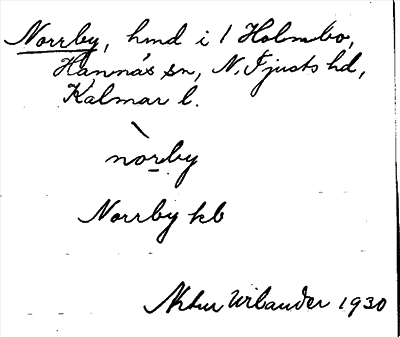 Norrby, hmd i 1 Holmbo,
Hannäs sn, N. Tjusts hd,
Kalmar l.
nòrby
Norrby kb
Artur Urbander 1930